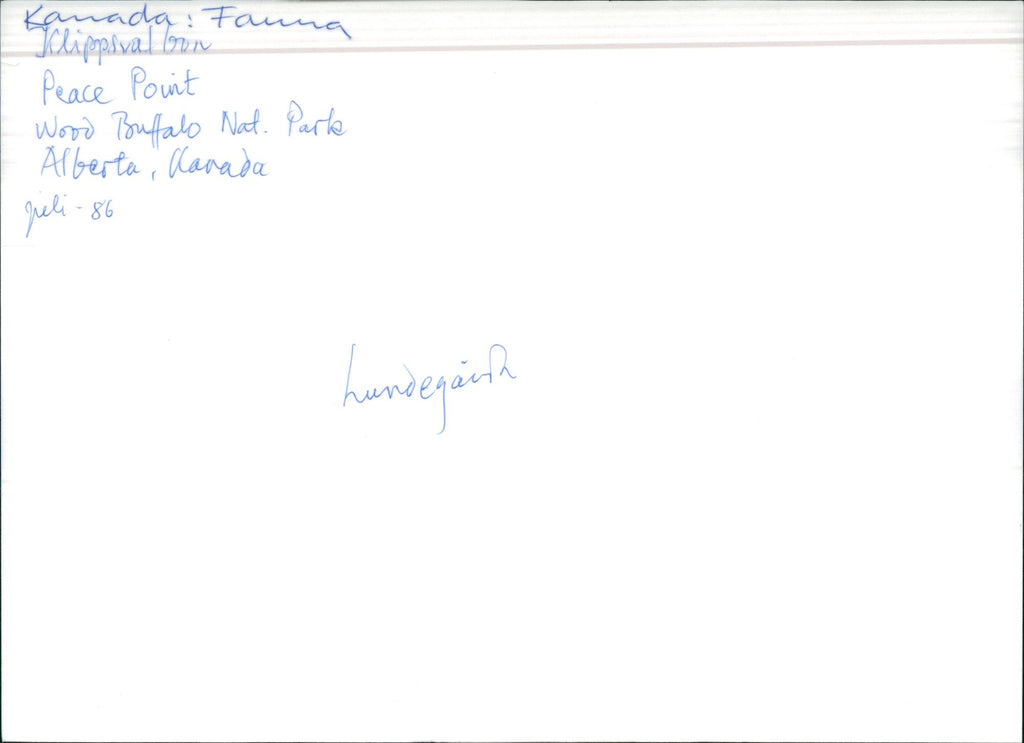 Kanada: Fauna
Klippsvalbon
Peace Point
Wood Buffalo Nat. Park
Alberta, Kanada
juli - 86
Lundegårdh